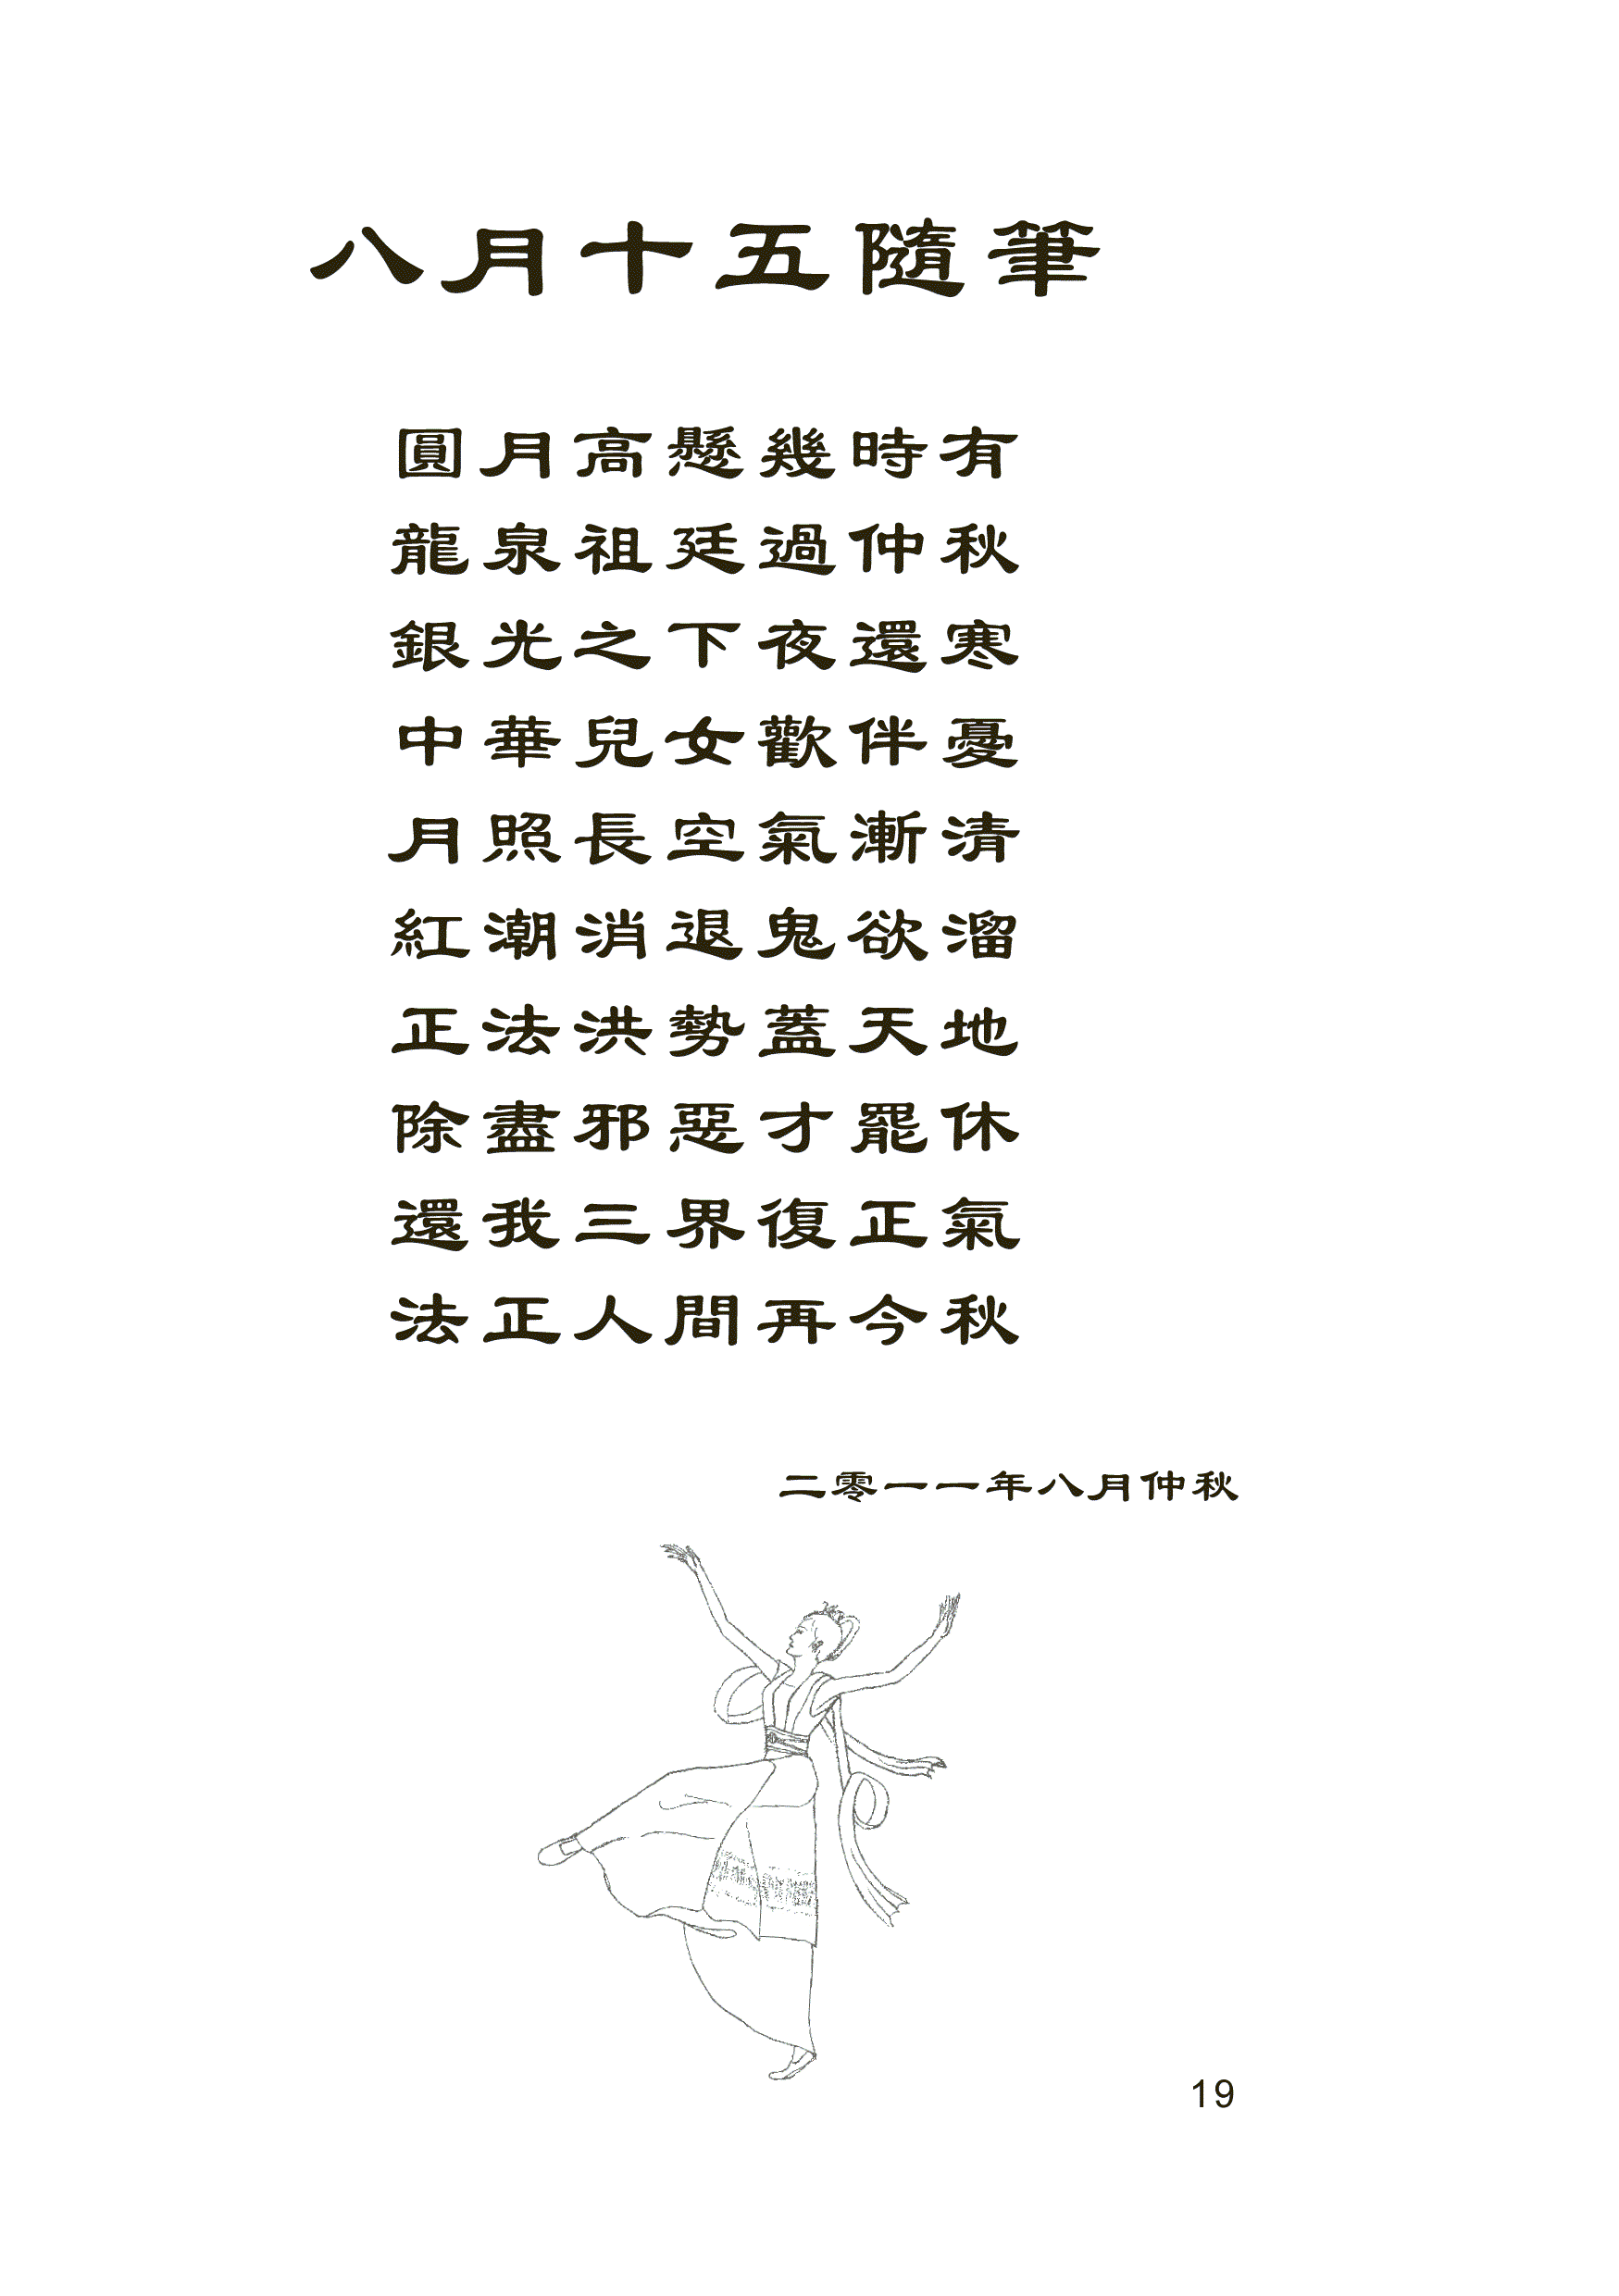 八月十五隨筆
圓月高懸幾時有
龍泉祖廷過仲秋
銀光之下夜還寒
中華兒女歡伴憂
月照長空氣漸清
紅潮消退鬼欲溜
正法洪勢蓋天地
除盡邪惡才罷休
還我三界復正氣
法正人間再今秋
二零一一年八月仲秋
19